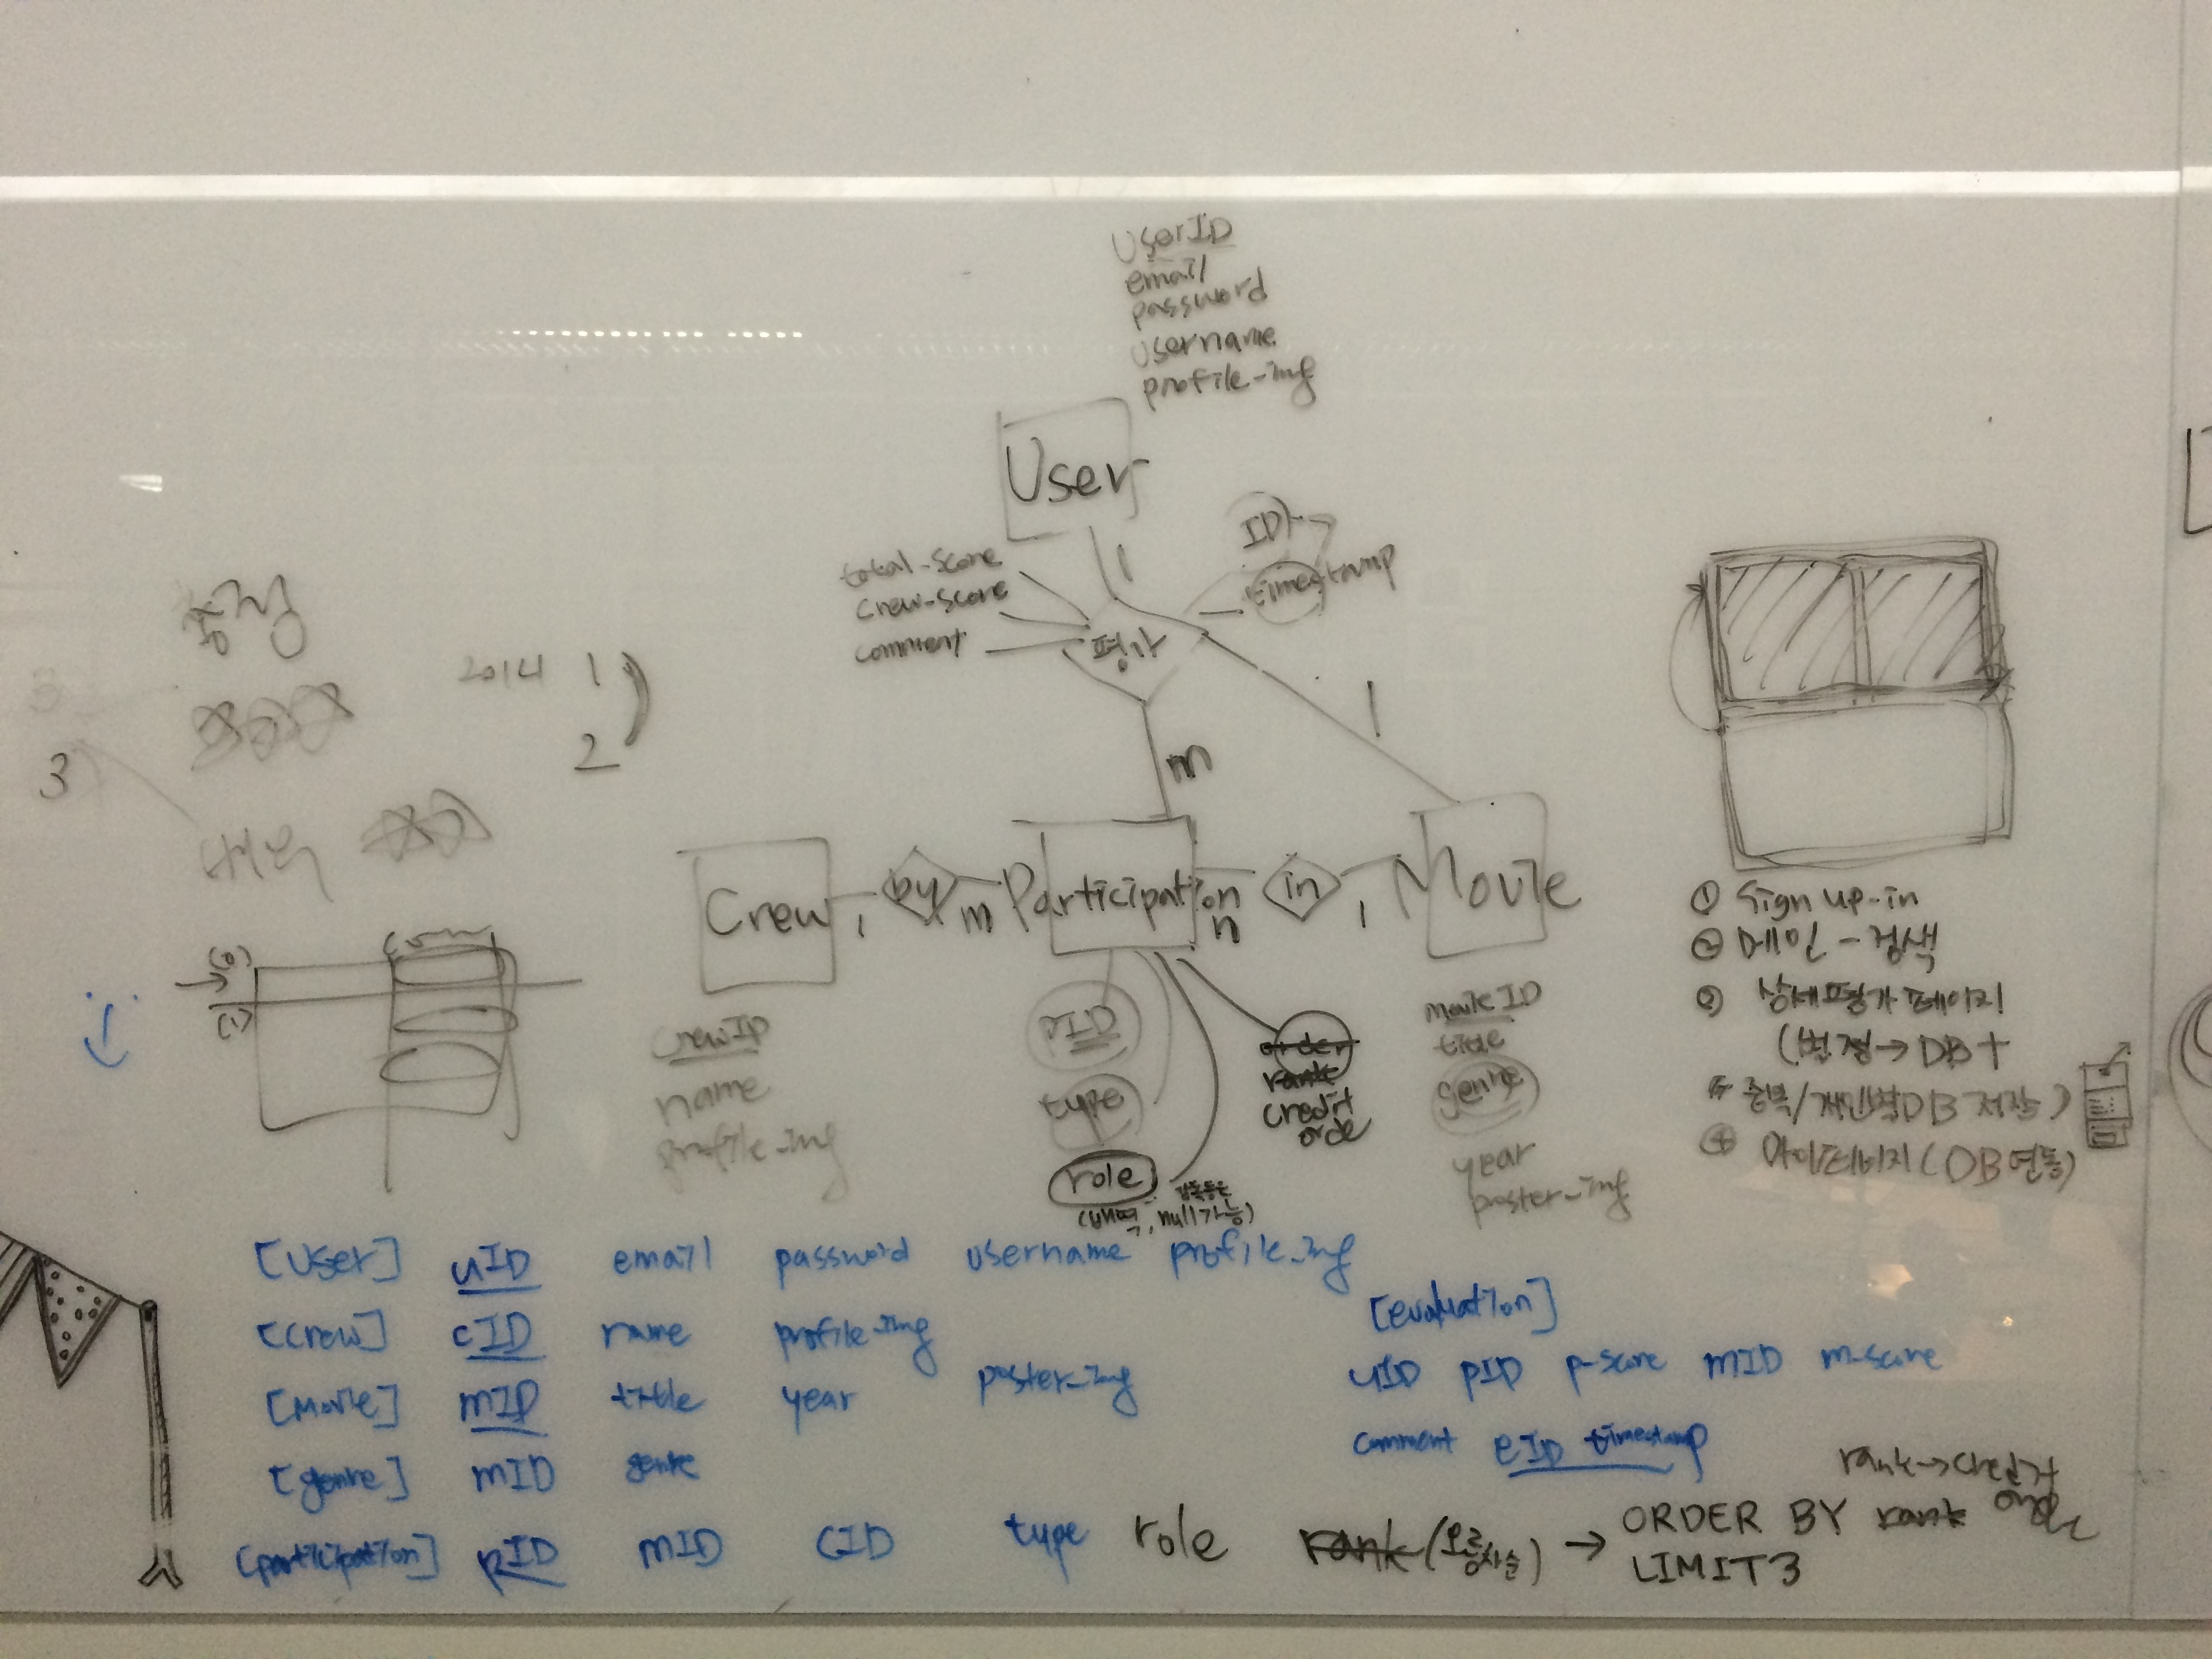 UserID
email
password
username
profile_img
User
ID
timestamp
total-score
crew-score
comment
평가
1
1
m
2014 1
2
3
Crew
1
by
m
Participation
n
in
1
Movie
CrewID
name
profile_img
PID
type
role
order
rank
credit
movieID
title
genre
year
poster_img
① Sign up-in
② 메인 - 검색
③ 상세평가 페이지
→ DB +
/개인별 DB 저장)
④ 마이페이지 (DB 연동)
[User] uID email password username profile_img
[Crew] cID name profile_img
[Movie] mID title year poster_img
[genre] mID genre
[participation] pID mID CID type role rank
[evaluation]
uID pID p-score mID m-score
comment eID timestamp
rank → credit
→ ORDER BY rank
LIMIT 3